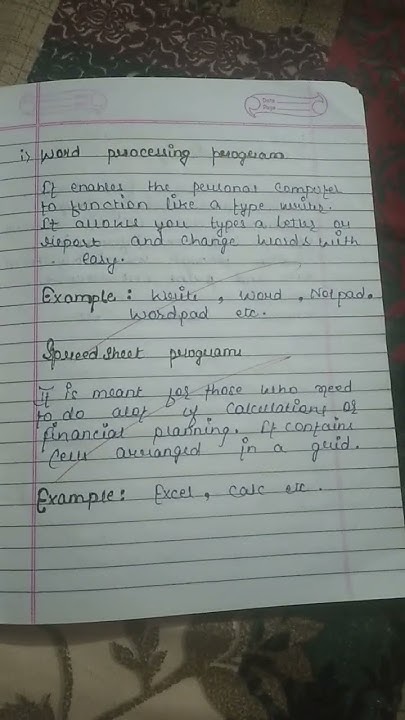 Date
Page
i) Word processing program
It enables the personal computer
to function like a type writer.
It allows you types a letter or
report and change words with
easy.
Example : Write , Word , Notpad.
Wordpad etc.
Spreedsheet program
It is meant for those who need
to do alot of calculations of
financial planning. It contains
Cells arranged in a grid.
Example : Excel , calc etc .